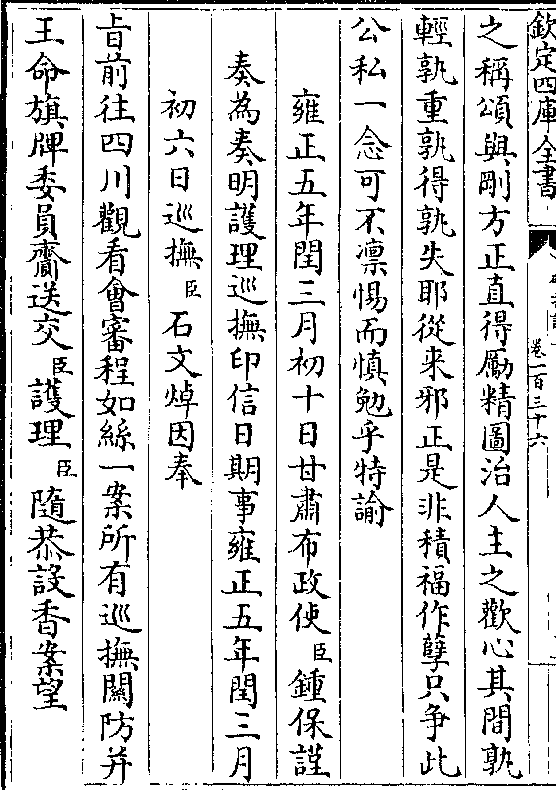 欽定四庫全書
卷一百三十六
之稱頌與剛方正直得勵精圖治人主之歡心其間孰
輕孰重孰得孰失耶從来邪正是非積福作孽只争此
公私一念可不凛惕而慎勉乎特諭
雍正五年閏三月初十日甘肅布政使臣鍾保謹
奏為奏明護理巡撫印信日期事雍正五年閏三月
初六日巡撫臣石文焯因奉
㫖前往四川觀看會審程如絲一案所有巡撫關防并
王命旗牌委員齎送交臣護理臣隨恭設香案望